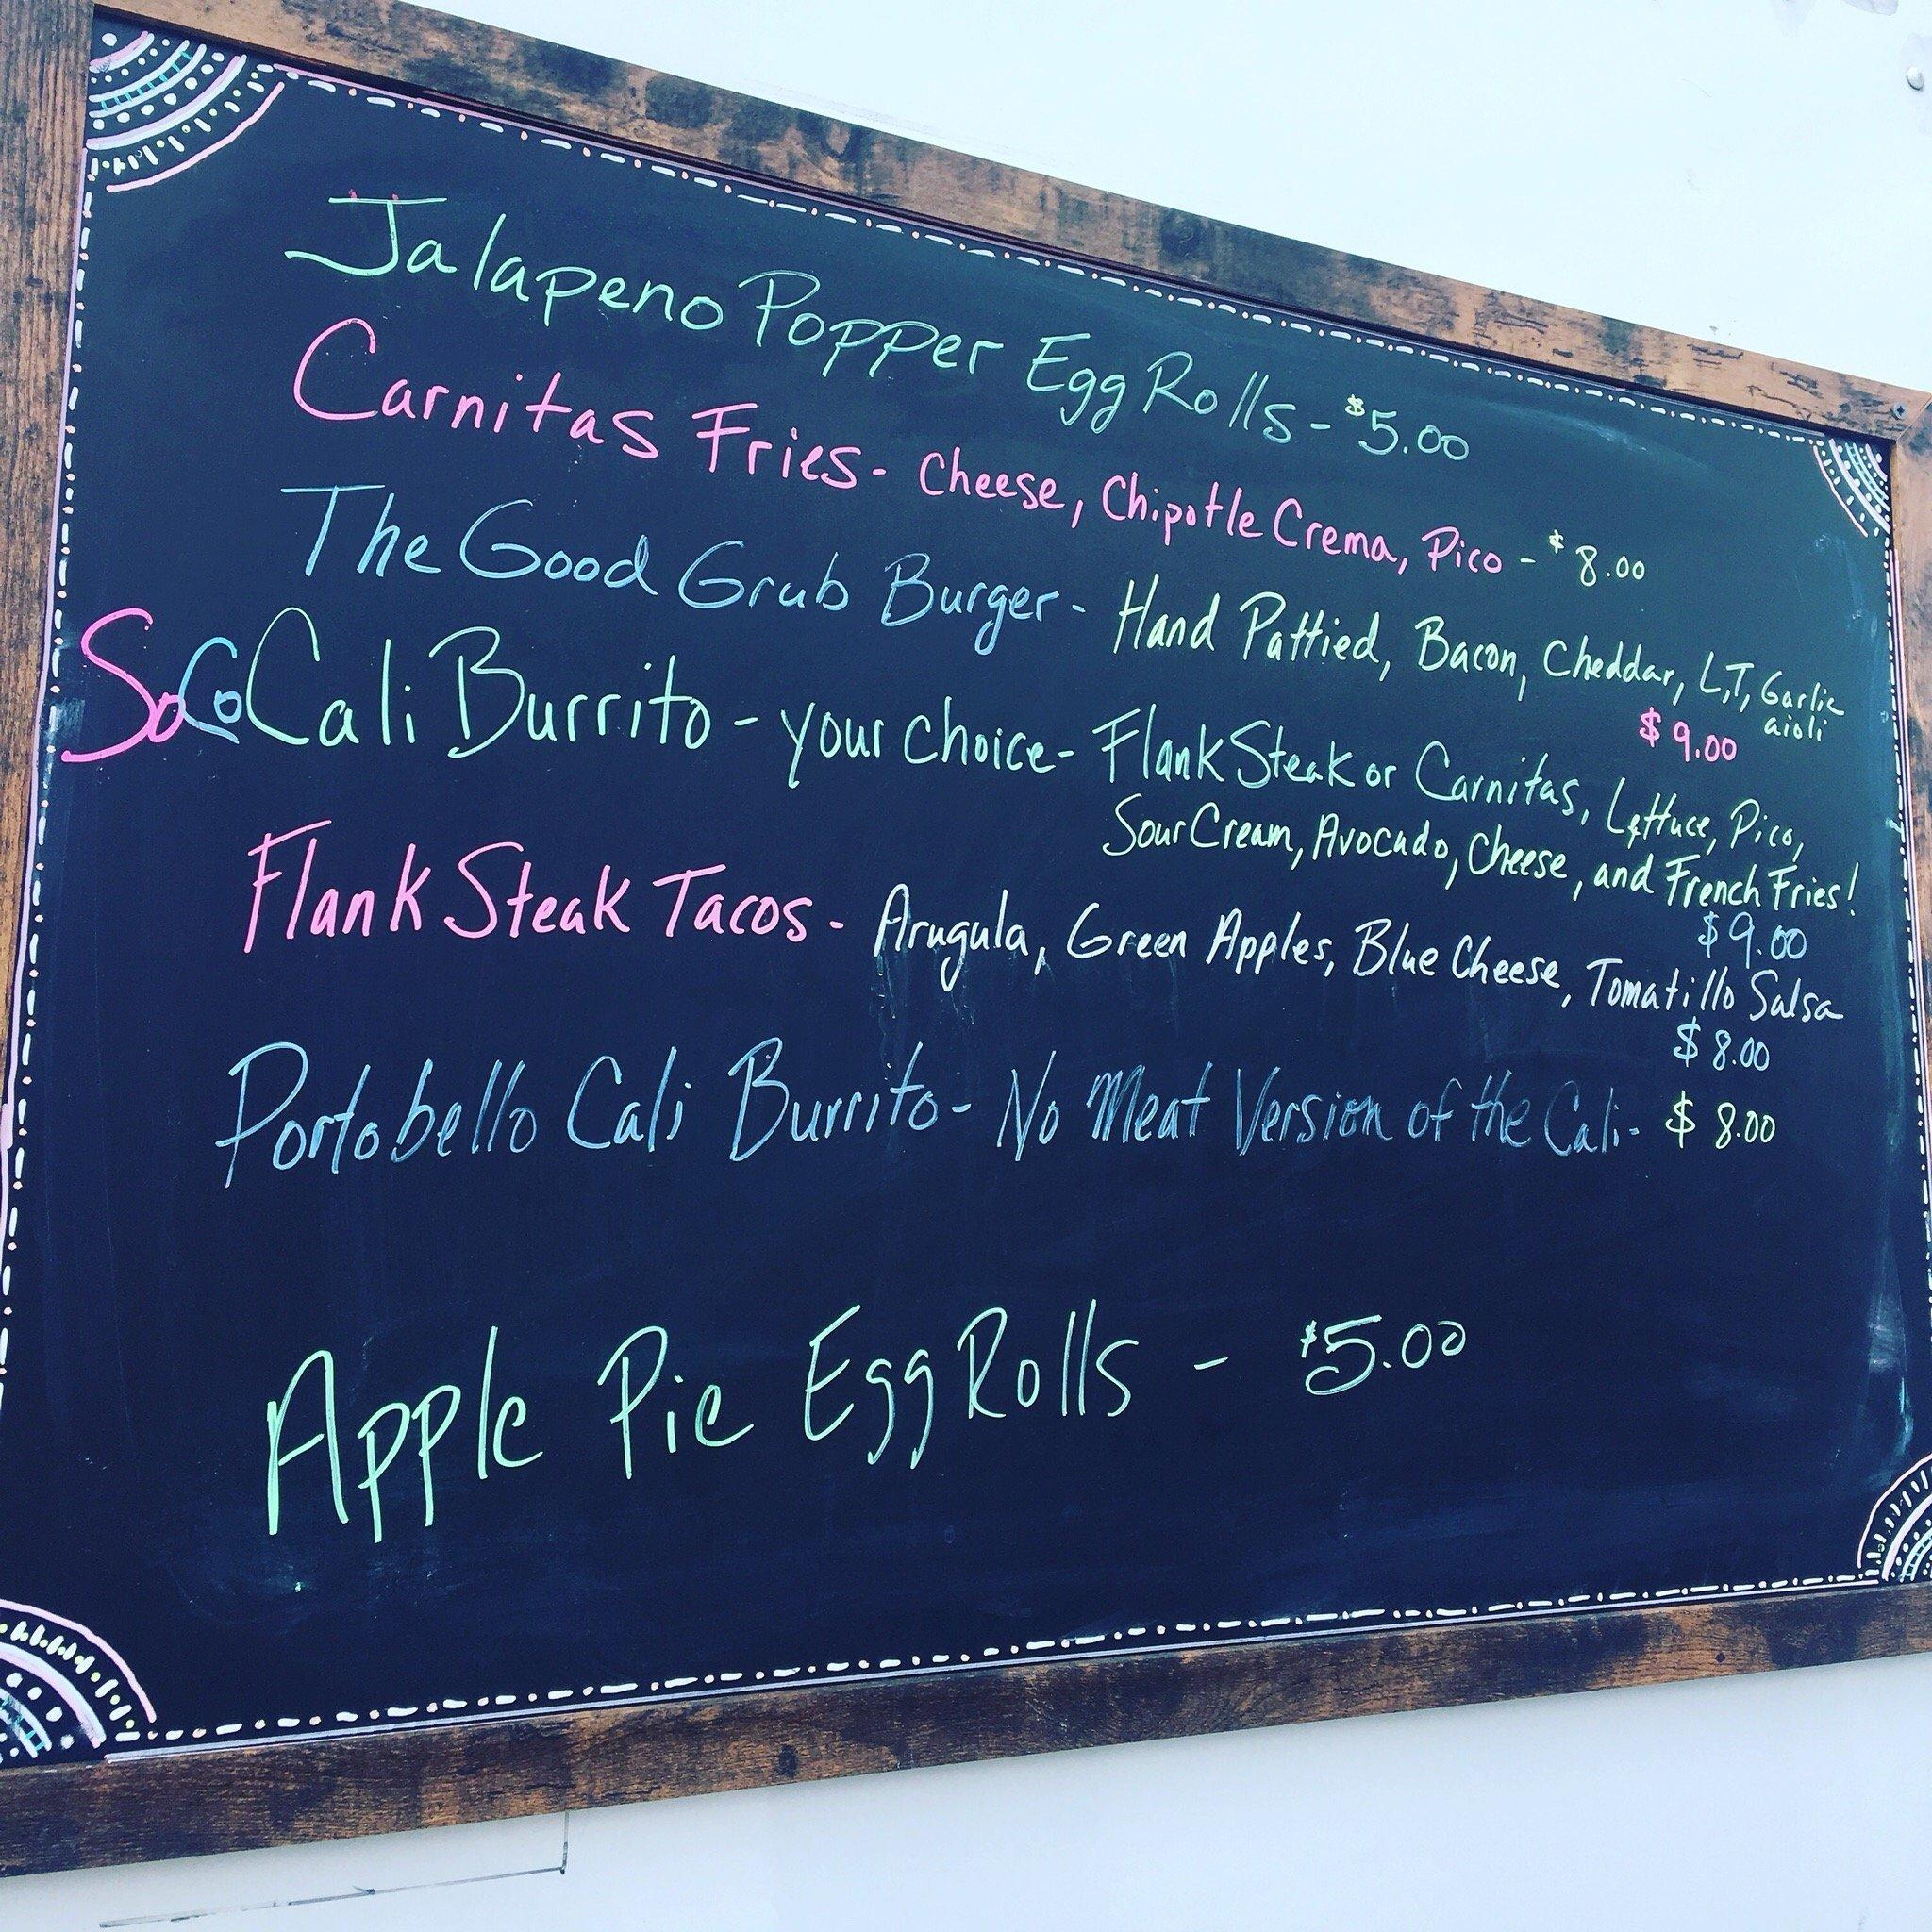 Jalapeno Popper Egg Rolls - $5.00
Carnitas Fries - Cheese, Chipotle Crema, Pico - $8.00
The Good Grub Burger - Hand Pattied, Bacon, Cheddar, L,T, Garlic
aioli
$9.00
SoCo Cali Burrito - your choice - Flank Steak or Carnitas, Lettuce, Pico,
Sour Cream, Avocado, Cheese, and French Fries!
$9.00
Flank Steak Tacos - Arugula, Green Apples, Blue Cheese, Tomatillo Salsa
$8.00
Portobello Cali Burrito - No Meat Version of the Cali - $8.00
Apple Pie Egg Rolls - $5.00